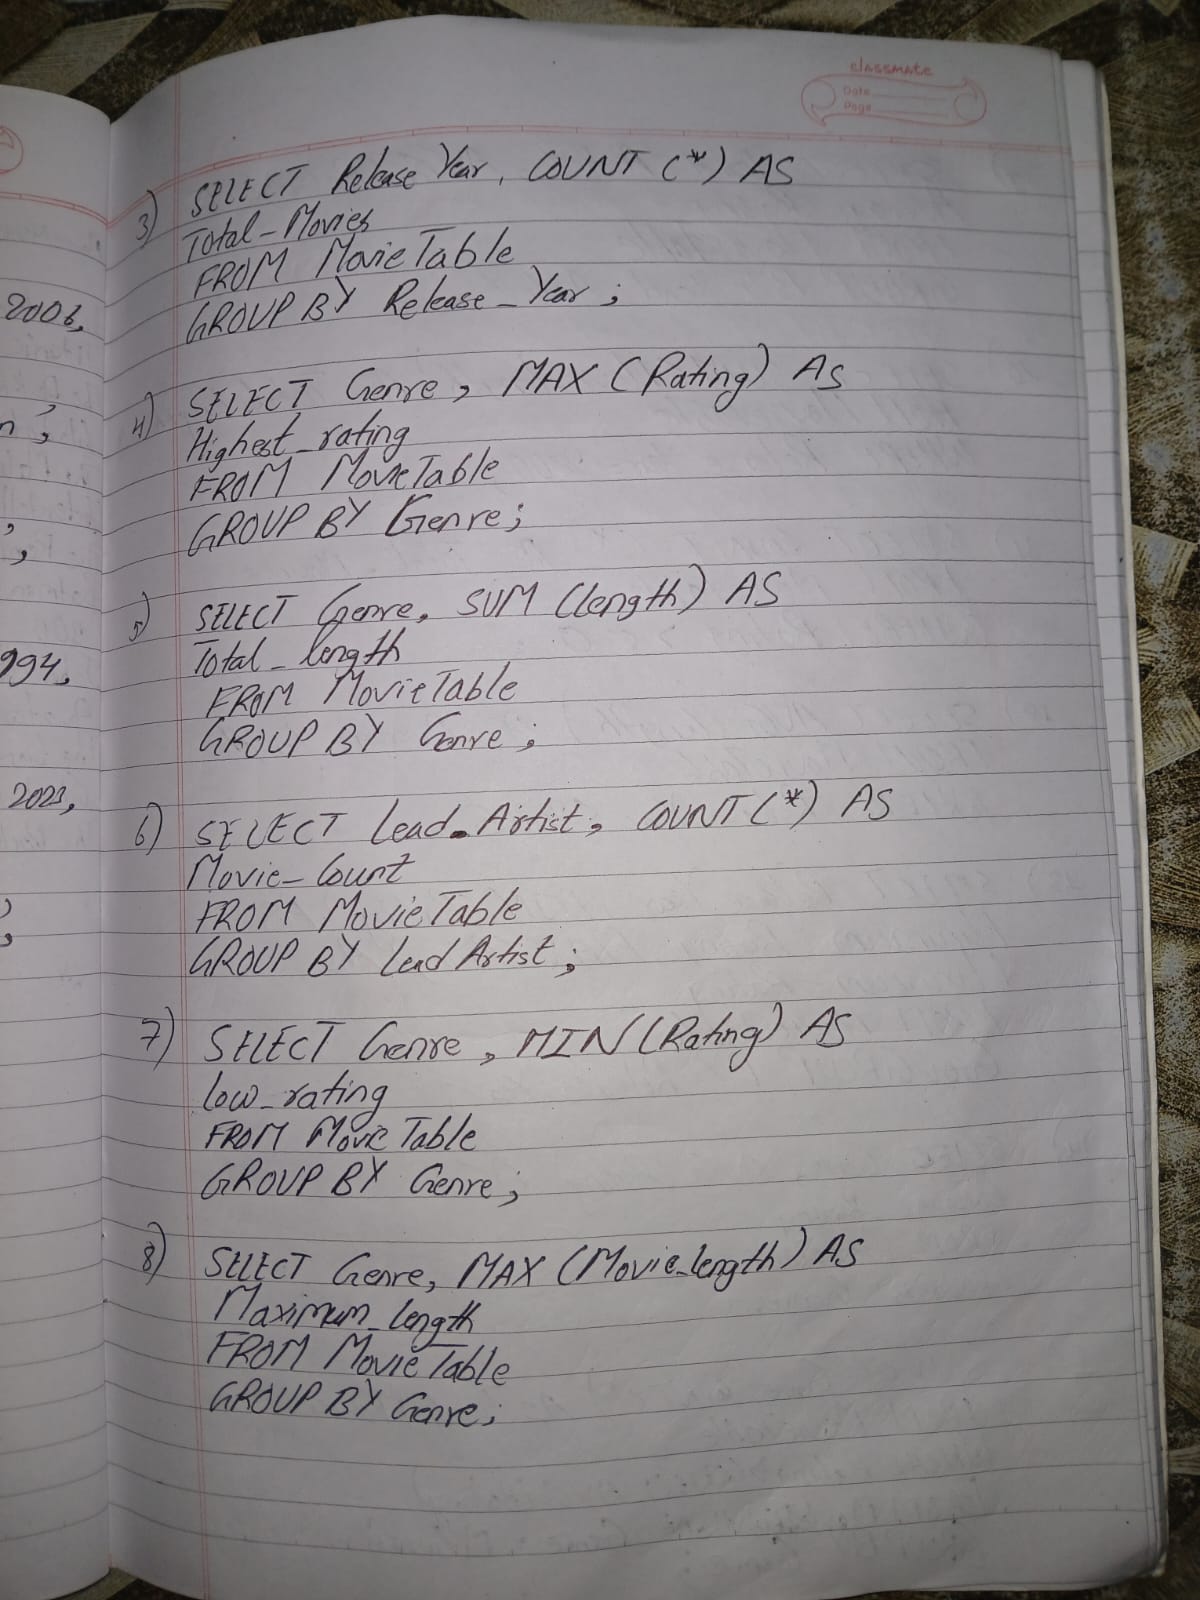 classmate
Date
Page
3) SELECT Release Year, COUNT (*) AS
Total_Movies
FROM MovieTable
GROUP BY Release_Year;
4) SELECT Genre, MAX (Rating) AS
Highest_rating
FROM MovieTable
GROUP BY Genre;
5) SELECT Genre, SUM (length) AS
Total_length
FROM MovieTable
GROUP BY Genre;
6) SELECT Lead Artist, COUNT (*) AS
Movie_Count
FROM MovieTable
GROUP BY Lead Artist;
7) SELECT Genre, MIN (Rating) AS
low_rating
FROM Movie Table
GROUP BY Genre;
8) SELECT Genre, MAX (Movie_length) AS
Maximum_length
FROM MovieTable
GROUP BY Genre;
2006,
n,
,
994,
2023,